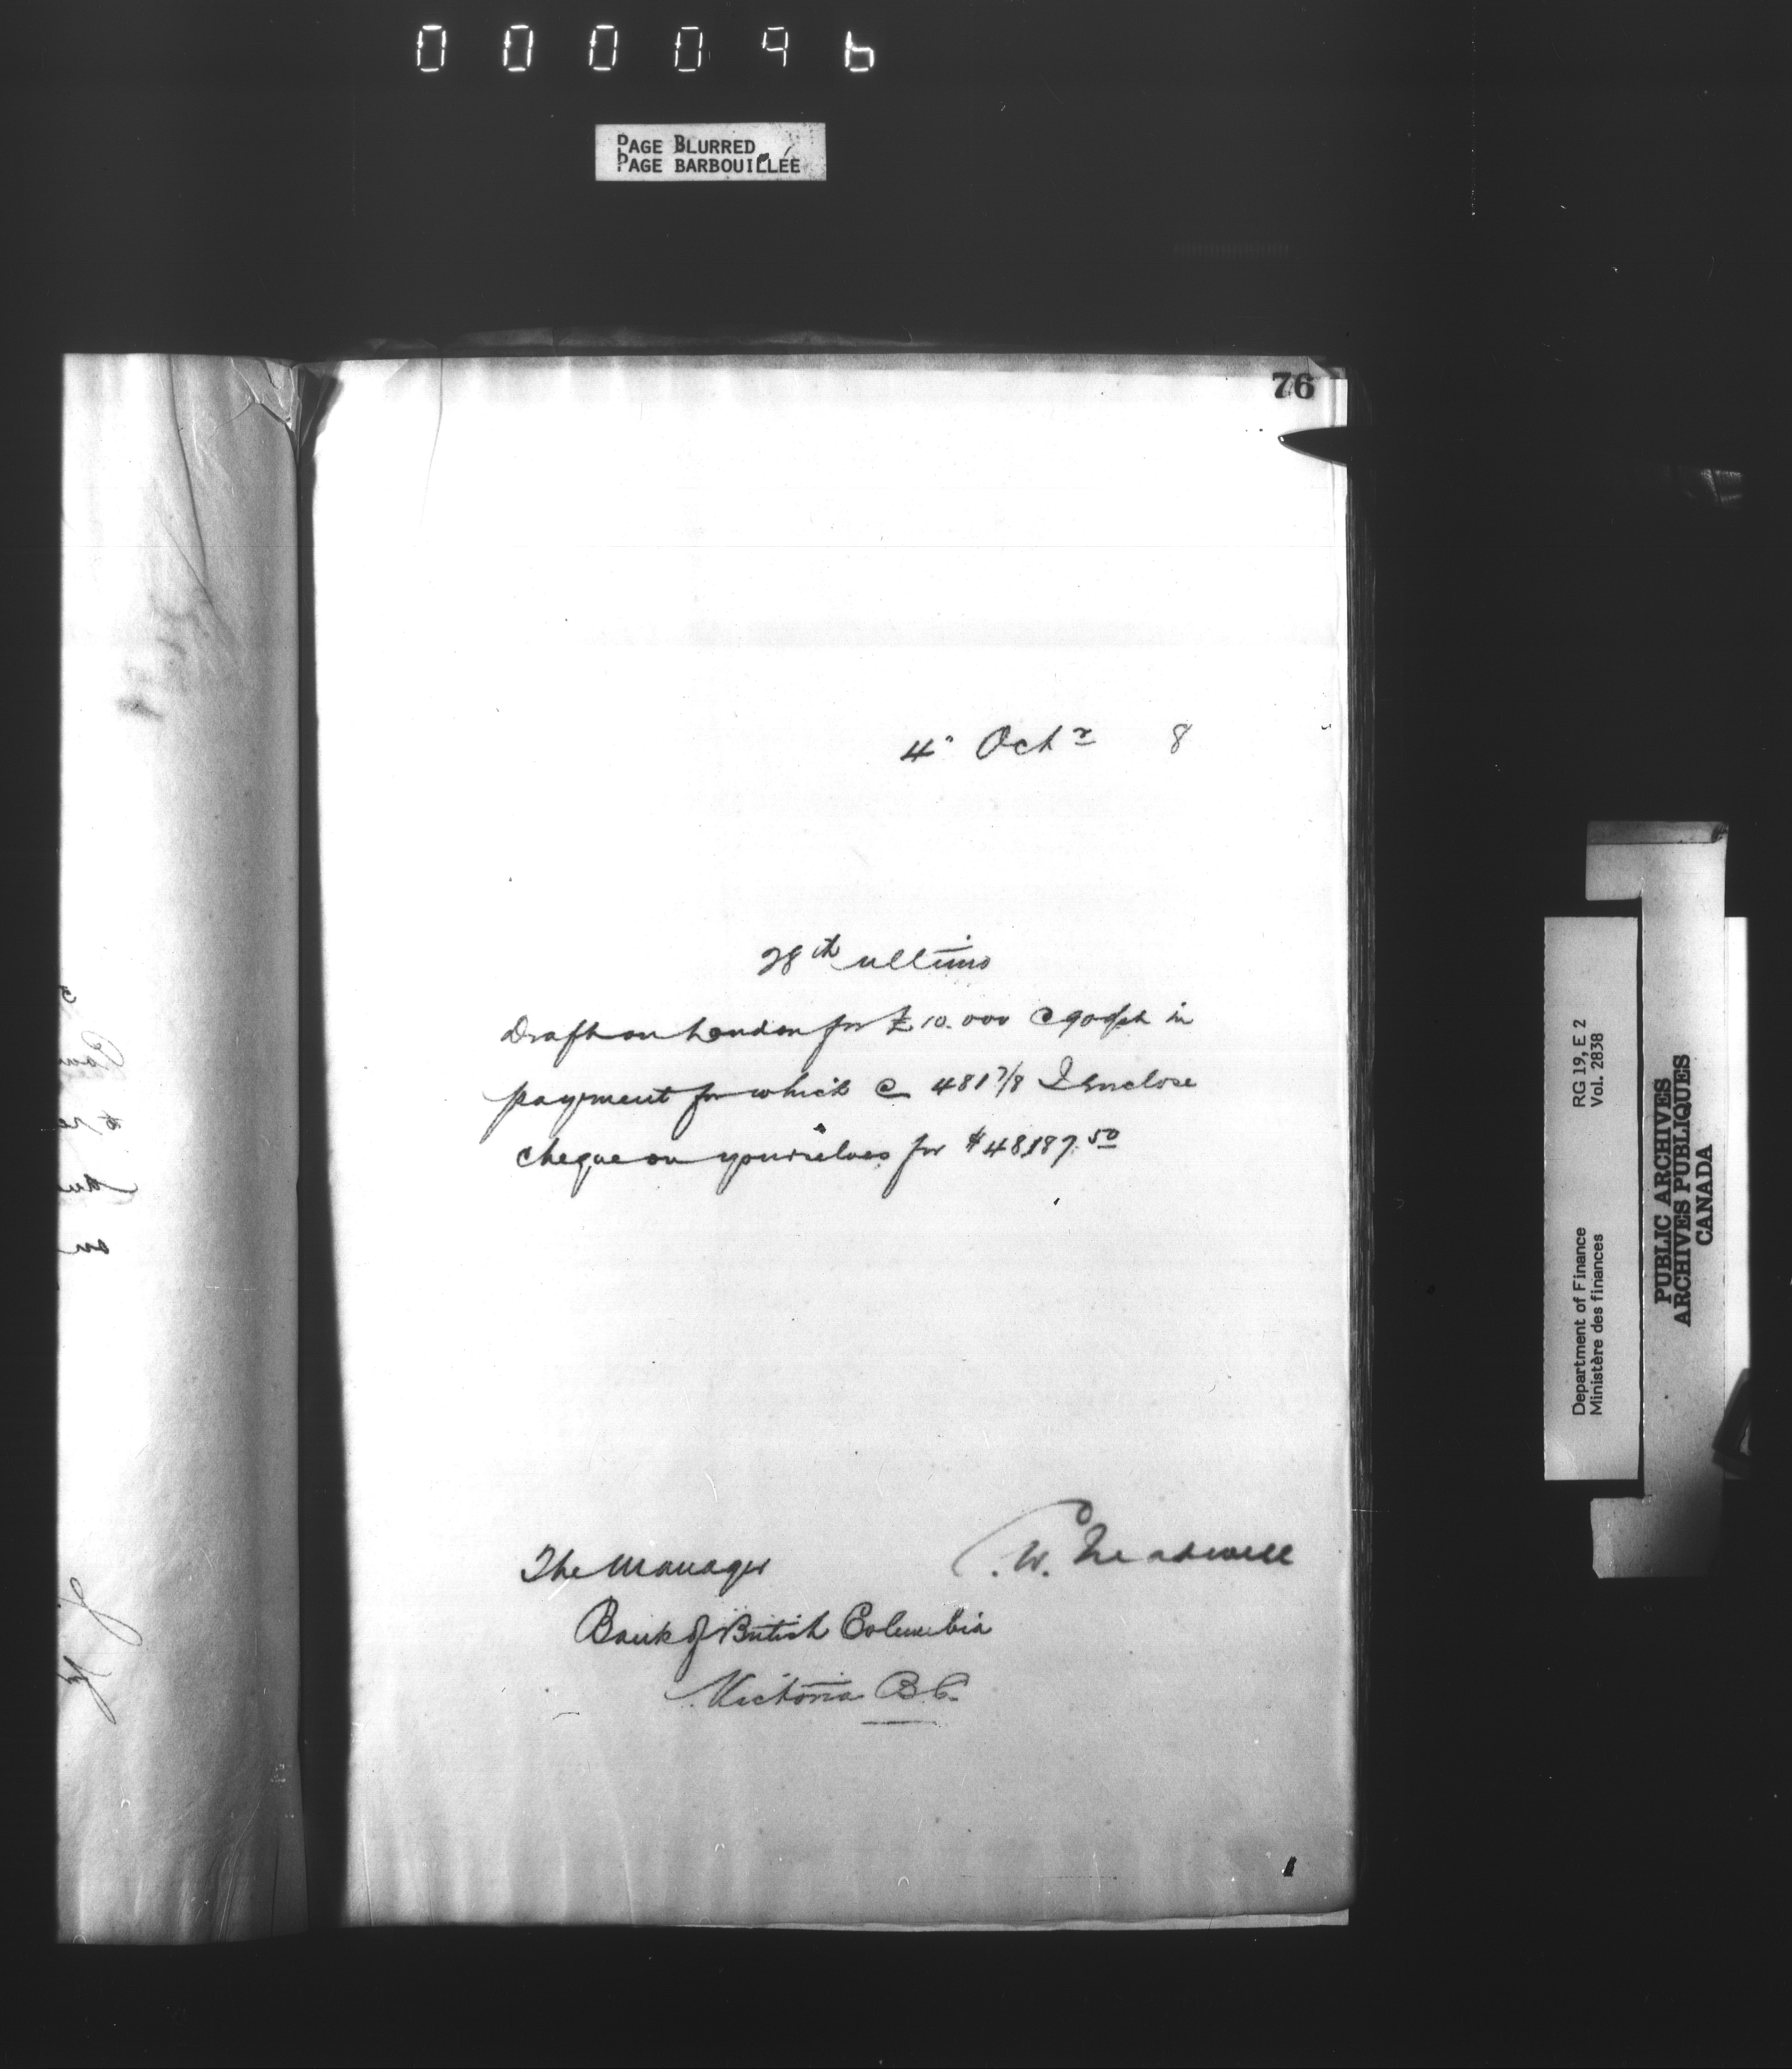 000096
PAGE BLURRED
PAGE BARBOUILLÉE
76
4" Octr 8
28th ultimo
Draft on London for £10.000 @ 90 d/st in
payment for which @ 481 7/8 I enclose
cheque on yourselves for $48187.50
The Manager
Bank of British Columbia
Victoria B.C.
W.
1
RG 19, E 2
Vol. 2838
Department of Finance
Ministère des finances
PUBLIC ARCHIVES
ARCHIVES PUBLIQUES
CANADA